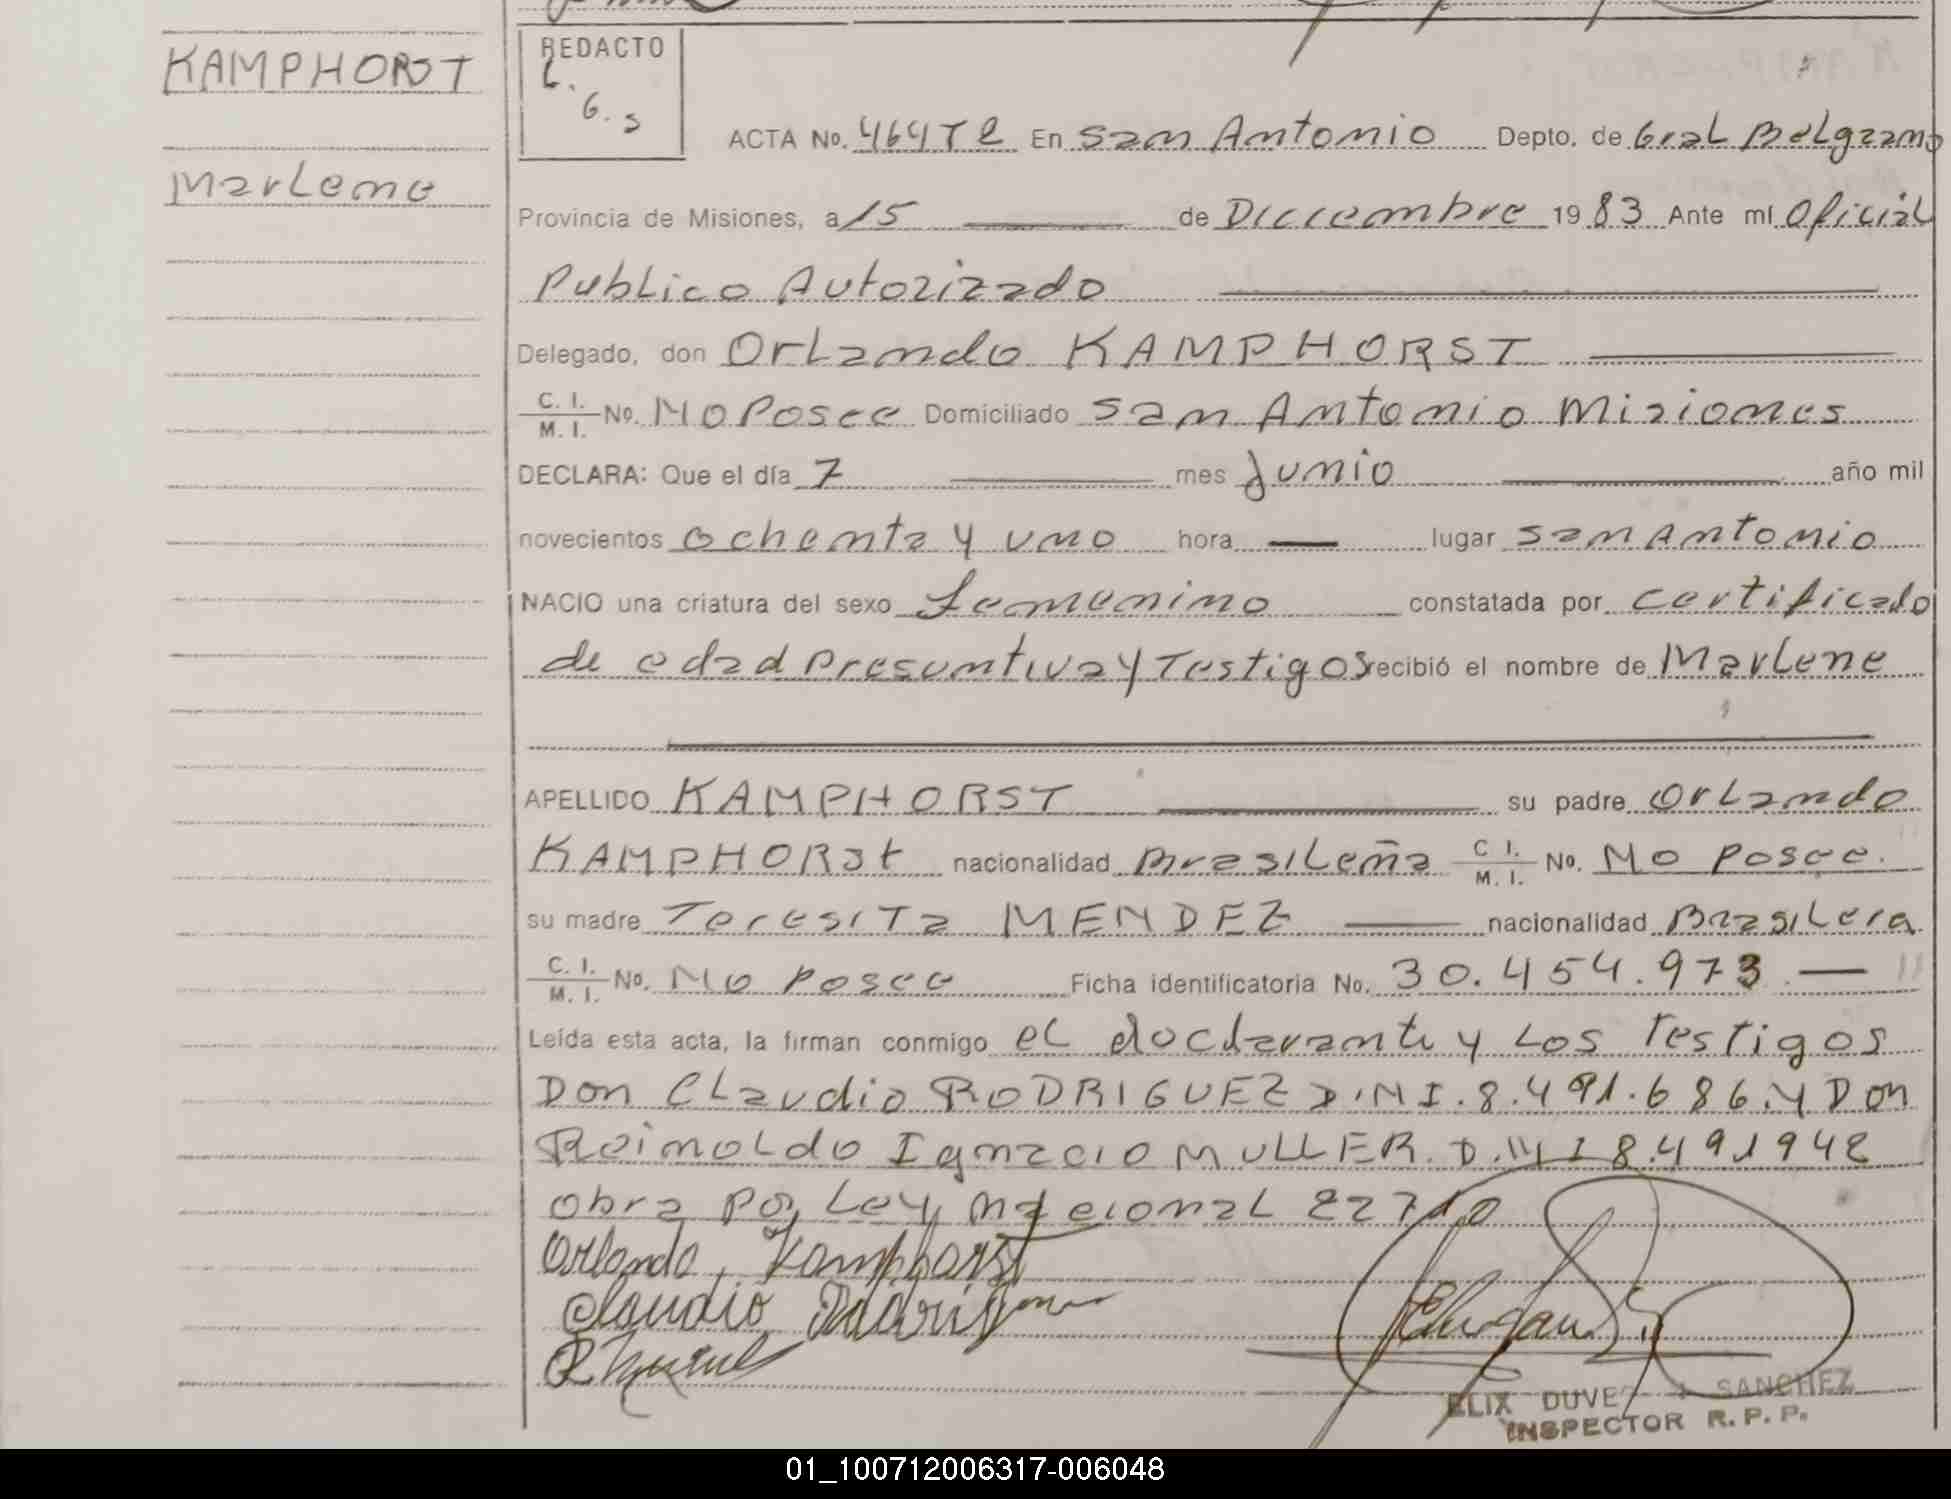 KAMPHORST
Marlene
REDACTO
G.
G. S
ACTA No. 464T2 En San Antonio Depto. de Gral Belgrano
Provincia de Misiones, a 15 de Diciembre 1983 Ante mí Oficial
Publico Autorizado
Delegado, don Orlando KAMPHORST
C. I. / M. I. No. No Posee Domiciliado San Antonio Misiones
DECLARA: Que el día 7 mes Junio año mil
novecientos ochenta y uno hora — lugar San Antonio
NACIO una criatura del sexo Femenino constatada por certificado
de edad Presuntiva y Testigos recibió el nombre de Marlene
APELLIDO KAMPHORST su padre Orlando
KAMPHORSt nacionalidad Brasileña C I. / M. I. No. No posee.
su madre Teresita MENDEZ nacionalidad Brasilera
C. I. / M. I. No. No posee Ficha identificatoria No. 30.454.973 —
Leída esta acta, la firman conmigo el declarante y Los Testigos
Don Claudio RODRIGUEZ D.N I. 8.491.686. y Don
Reinoldo Ignacio MULLER. D.N I 8.491942
obra por Ley nacional 22710
Orlando Kamphorst
Claudio Rodriguez
ELIX DUVE SANCHEZ
INSPECTOR R. P. P.
01_100712006317-006048